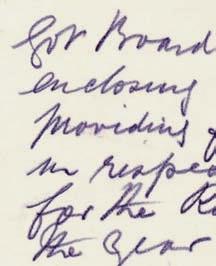 Gov Board
enclosing
providing
in respec
for the R
the year